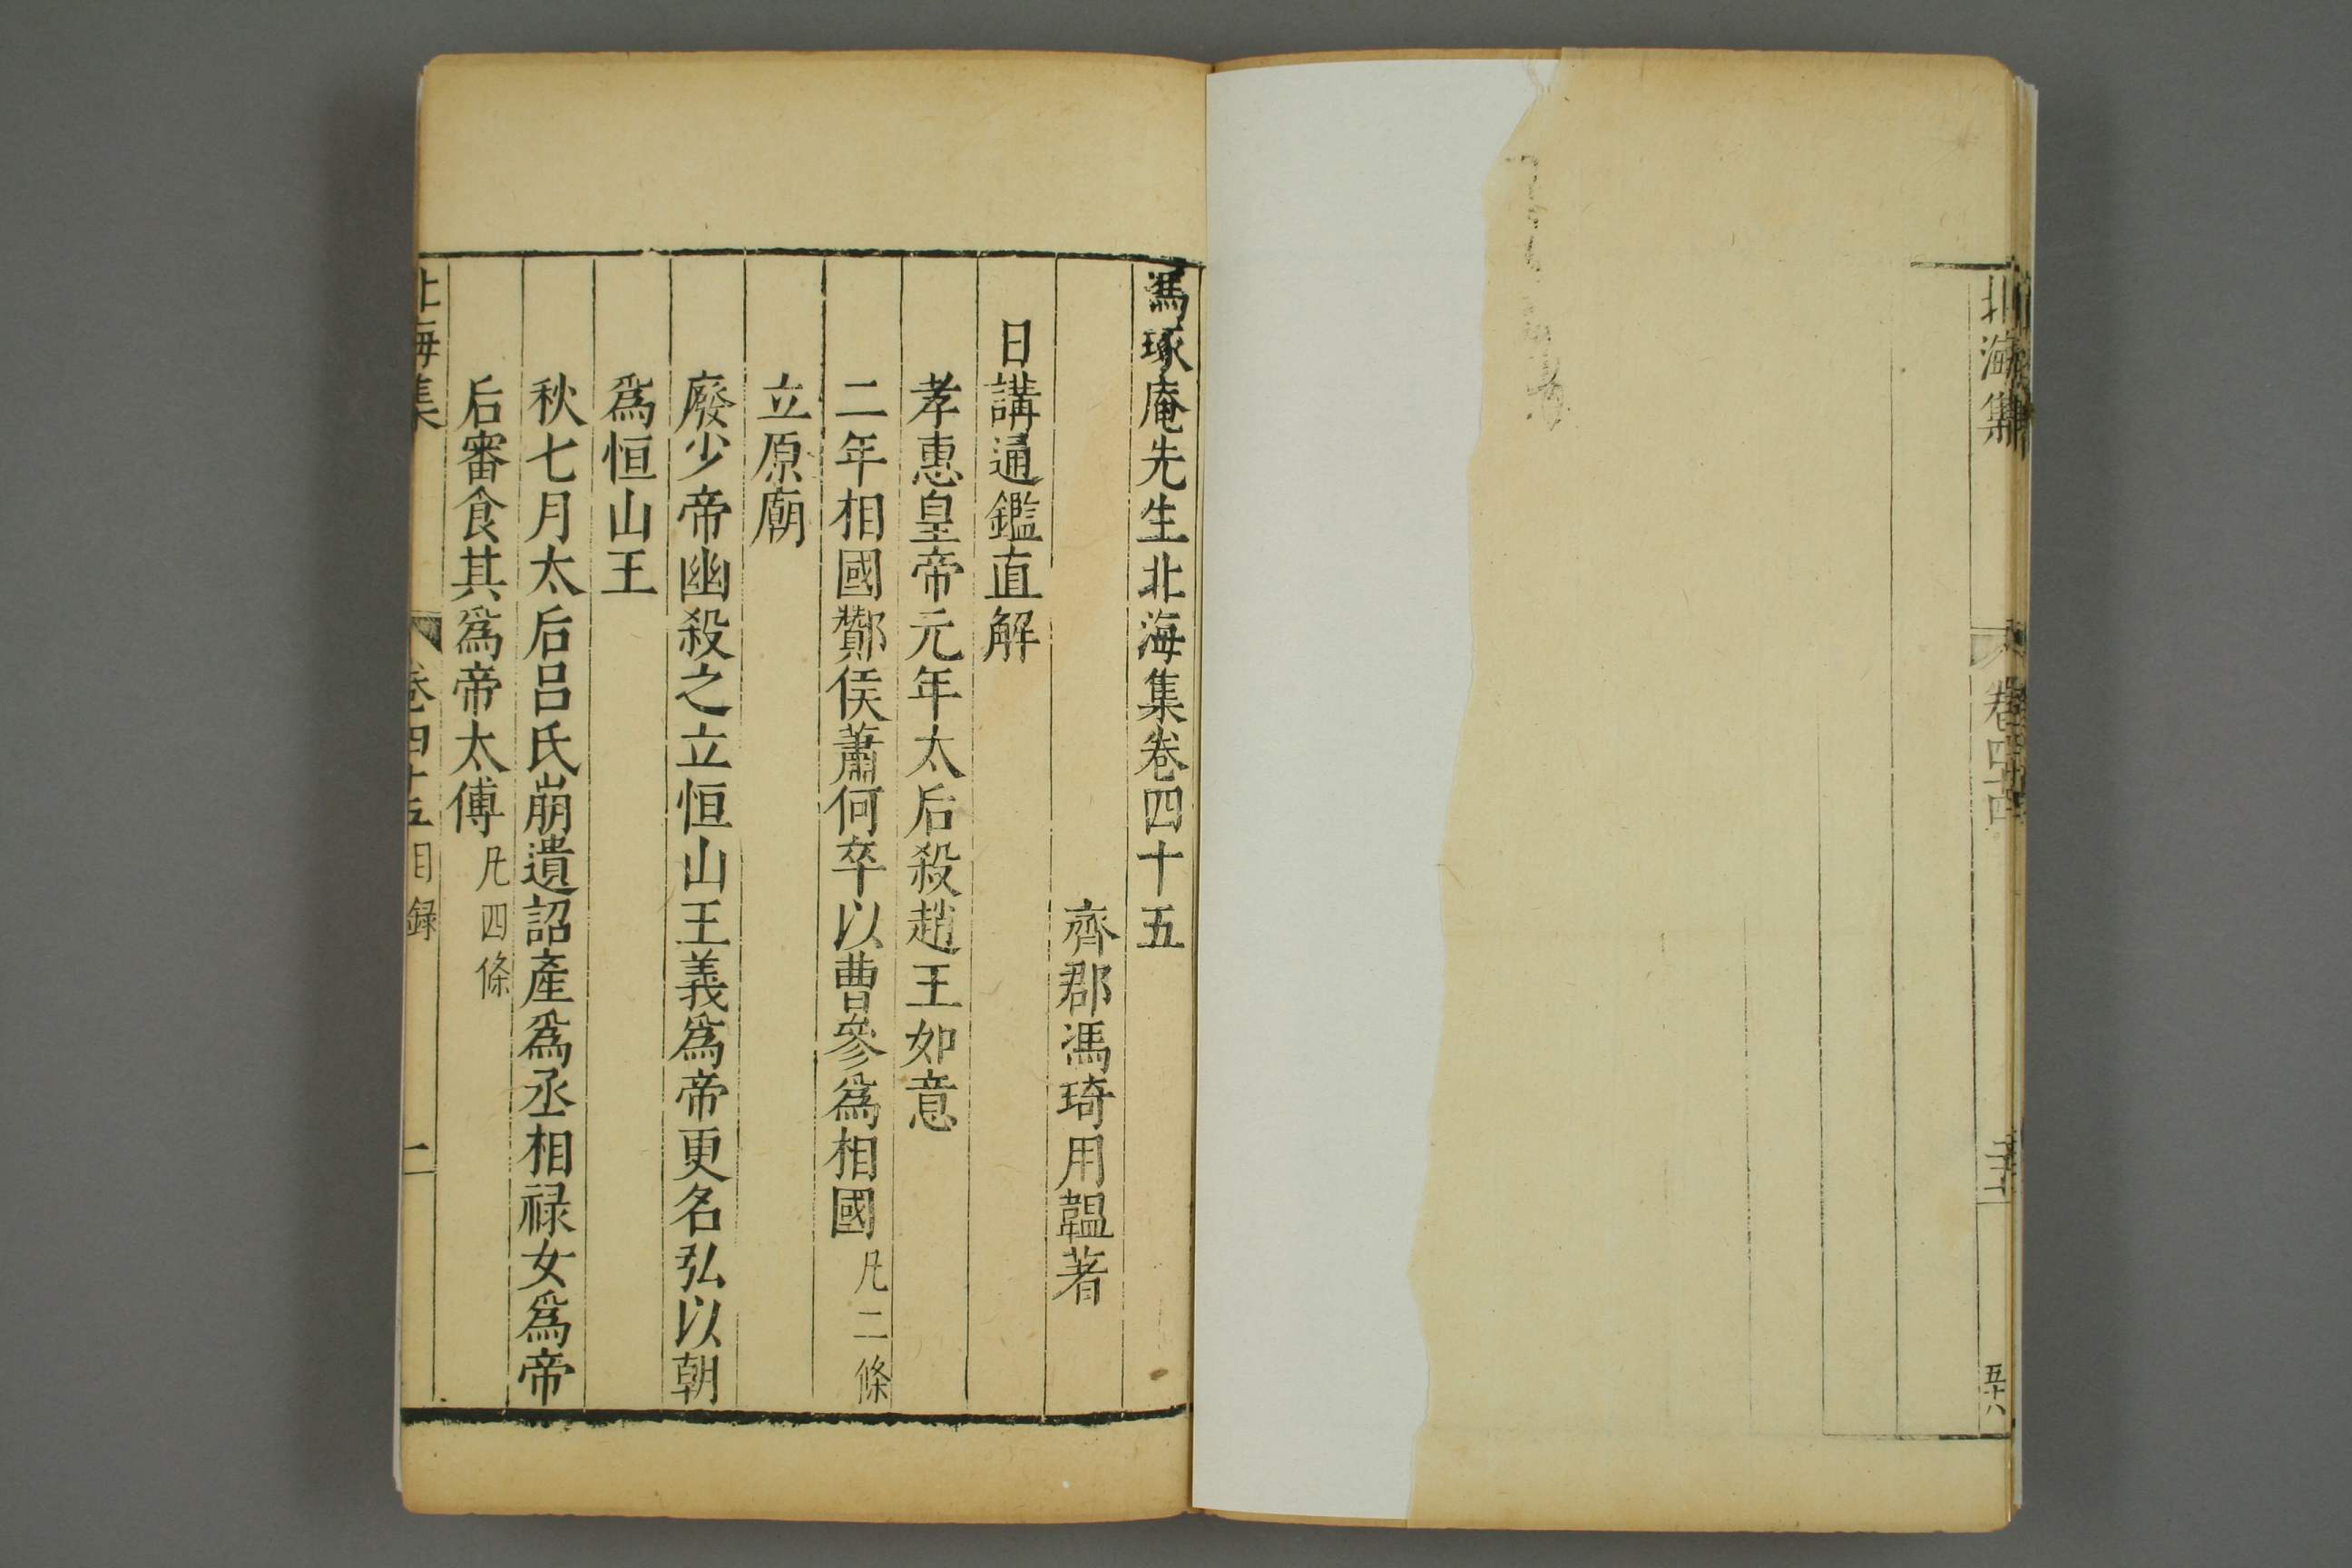 北海集
卷四十四
五十八
馮琢庵先生北海集卷四十五
齊郡馮琦用韞著
日講通鑑直解
孝惠皇帝元年太后殺趙王如意
二年相國酇侯蕭何卒以曹參爲相國凡二條
立原廟
廢少帝幽殺之立恒山王王義爲帝更名弘以朝
爲恒山王
秋七月太后呂氏崩遺詔產爲丞相禄女爲帝
后審食其爲帝太傅凡四條
北海集
卷四十五目録
一